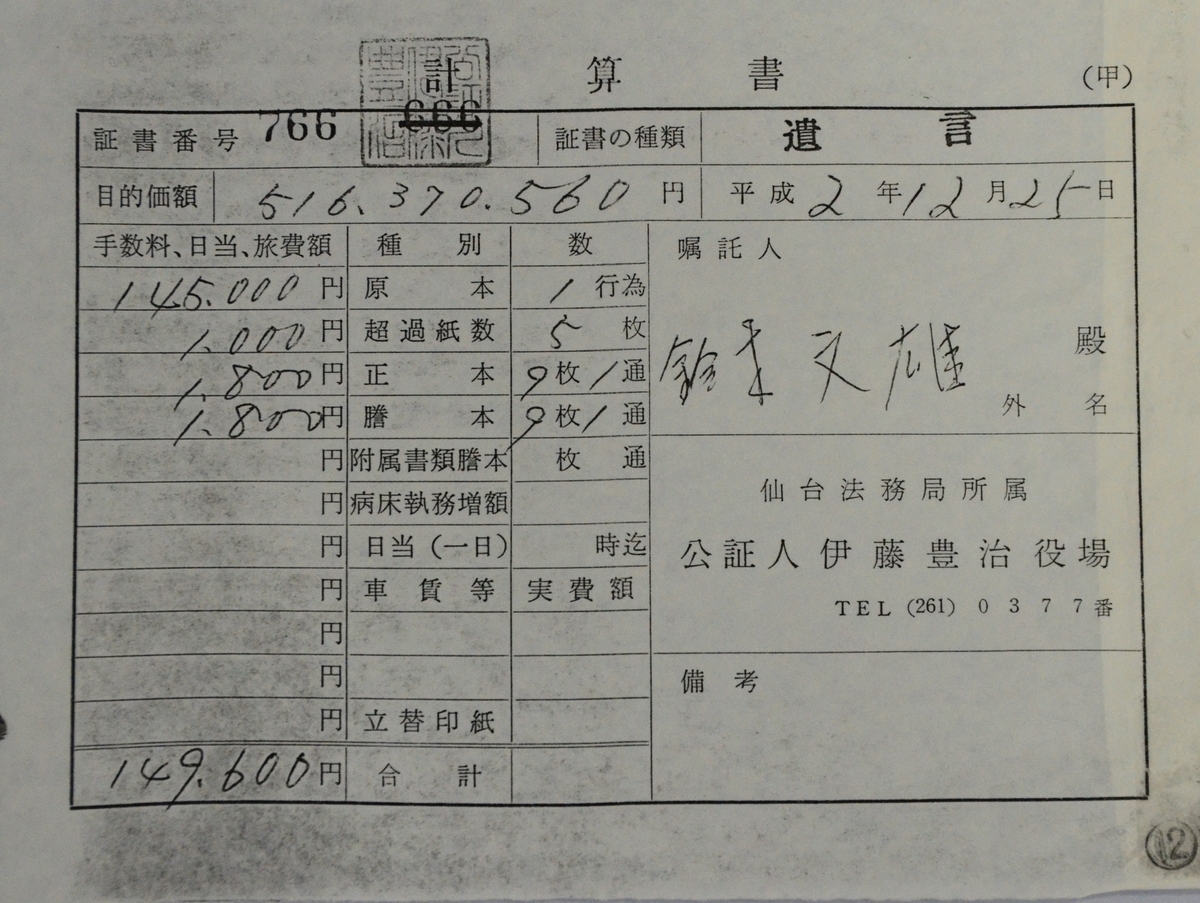 計算書 (甲)
証書番号 766 666 証書の種類 遺言
目的価額 516.370.560 円 平成 2 年 12 月 25 日
手数料、日当、旅費額 種別 数 嘱託人
145.000 円 原本 1 行為
1.000 円 超過紙数 5 枚
1.800 円 正本 9 枚 1 通
1.800 円 謄本 9 枚 1 通
鈴木文雄 殿
外 名
円 附属書類謄本 枚 通
円 病床執務増額
円 日当(一日) 時迄
円 車賃等 実費額
円
円
円 立替印紙
149.600 円 合計
仙台法務局所属
公証人伊藤豊治役場
TEL (261) 0377番
備考
12